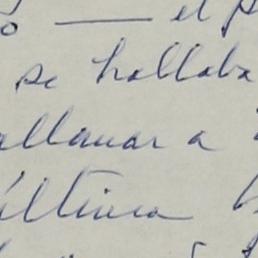 el
se hallaba
allanar a
última